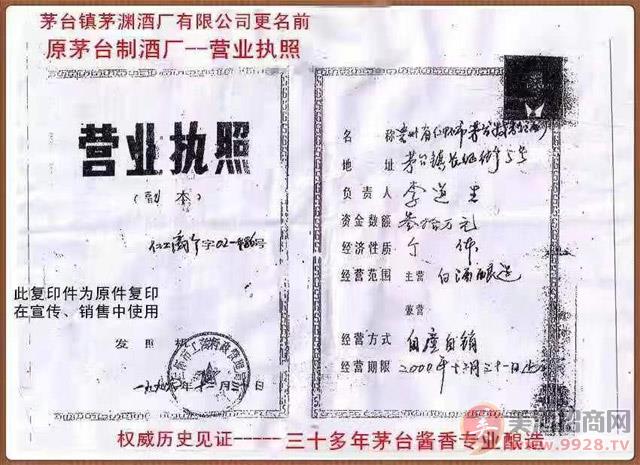 茅台镇茅渊酒厂有限公司更名前
原茅台制酒厂--营业执照
营业执照
(副本)
仁工商个字02-486号
此复印件为原件复印
在宣传、销售中使用
发照机
名称 贵州省仁怀市茅台
地址 茅台镇 5号
负责人 李道
资金数额 叁拾万元
经济性质 个体
经营范围 主营 白酒酿造
兼营
经营方式 自产自销
经营期限 2000年十二月三十一日
权威历史见证-----三十多年茅台酱香专业酿造
美酒招商网
www.9928.TV